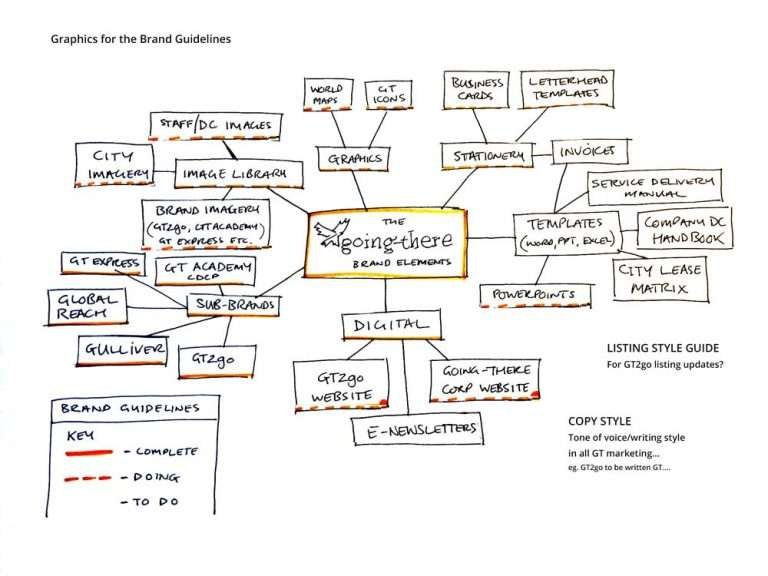 Graphics for the Brand Guidelines
WORLD
MAPS
GT
ICONS
BUSINESS
CARDS
LETTERHEAD
TEMPLATES
STAFF/DC IMAGES
CITY
IMAGERY
IMAGE LIBRARY
GRAPHICS
STATIONERY
INVOICES
BRAND IMAGERY
(GT2go, GTACADEMY)
GT EXPRESS ETC.
SERVICE DELIVERY
MANUAL
THE
going-there
BRAND ELEMENTS
TEMPLATES
(WORD, PPT, EXCEL)
COMPANY DC
HANDBOOK
GT EXPRESS
GT ACADEMY
CDCP
CITY LEASE
MATRIX
GLOBAL
REACH
SUB-BRANDS
POWERPOINTS
GULLIVER
GT2go
DIGITAL
LISTING STYLE GUIDE
For GT2go listing updates?
GT2go
WEBSITE
GOING-THERE
CORP WEBSITE
E-NEWSLETTERS
BRAND GUIDELINES
KEY
- COMPLETE
- DOING
- TO DO
COPY STYLE
Tone of voice/writing style
in all GT marketing...
eg. GT2go to be written GT....